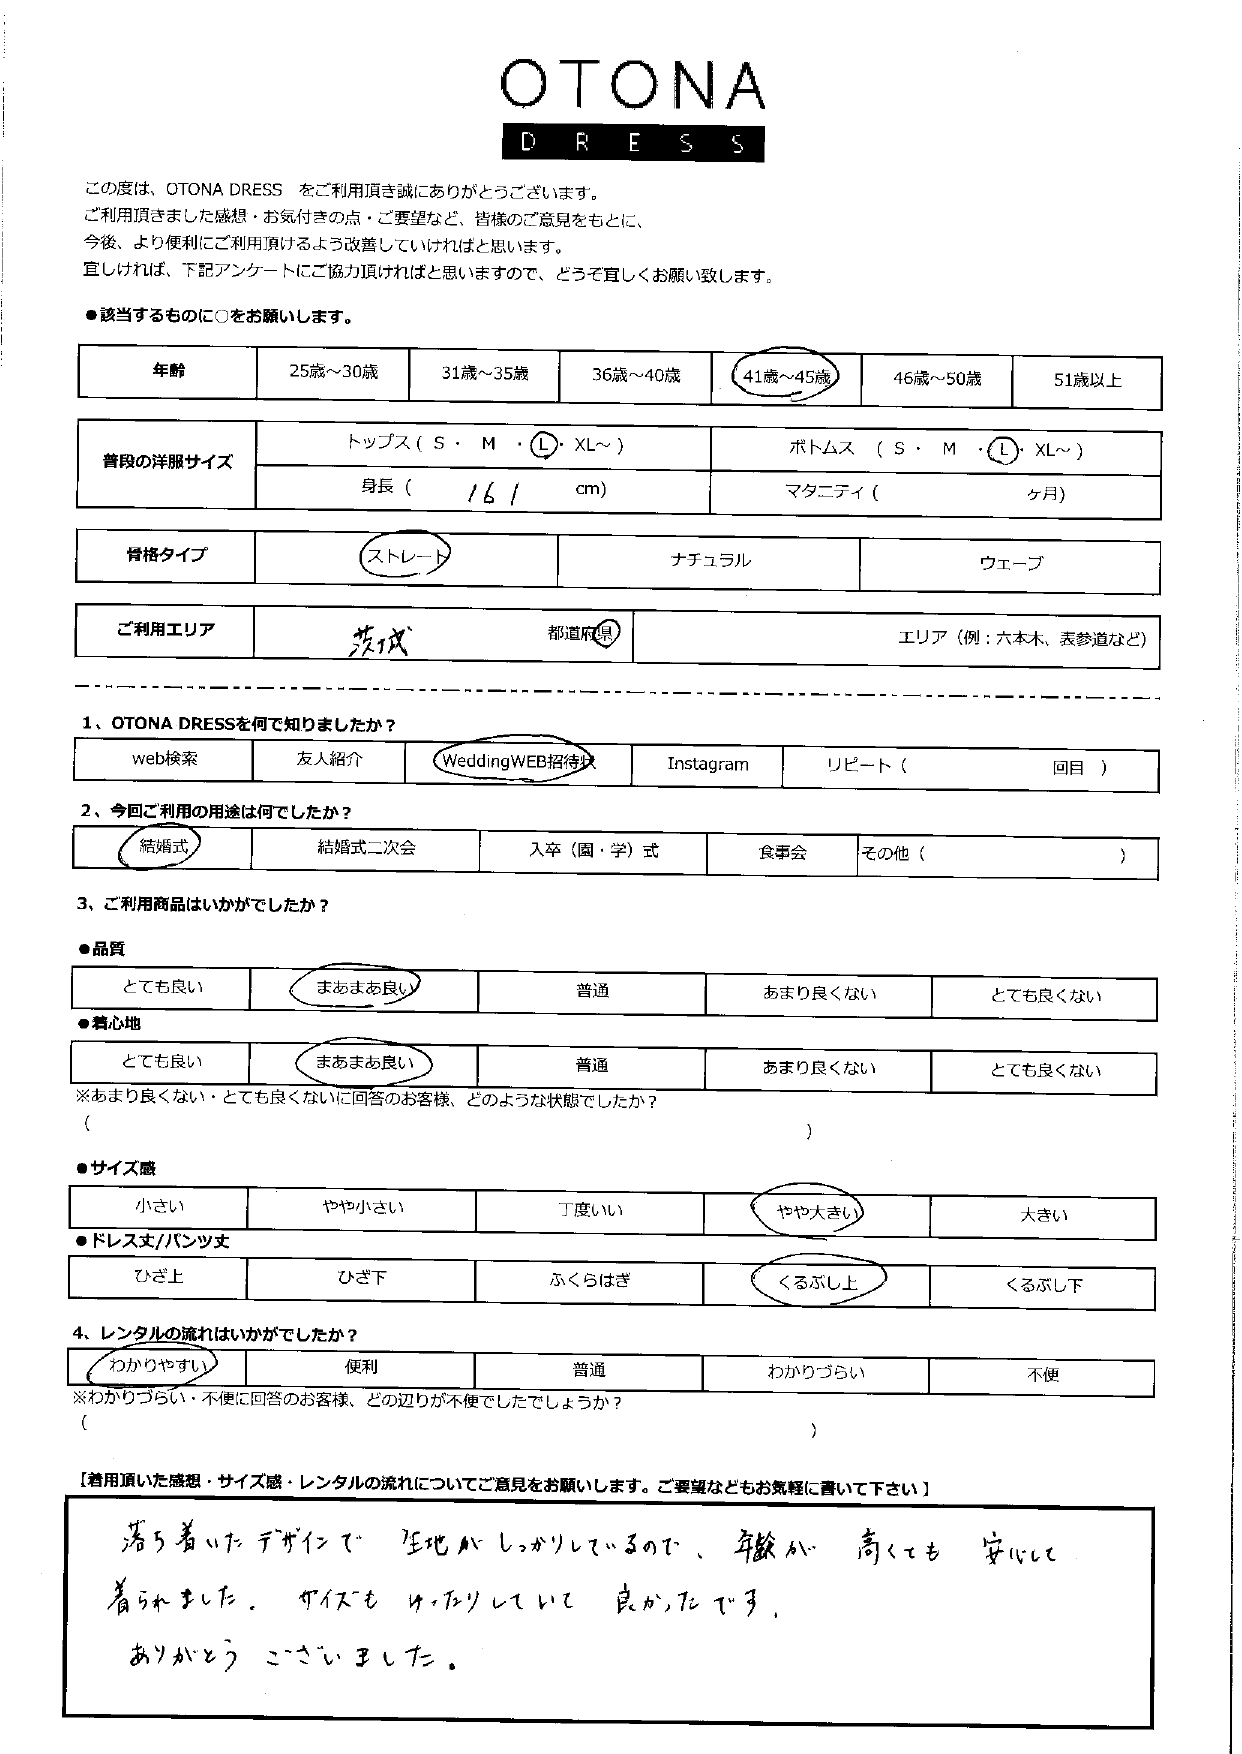 OTONA
DRESS
この度は、OTONA DRESS をご利用頂き誠にありがとうございます。
ご利用頂きました感想・お気付きの点・ご要望など、皆様のご意見をもとに、
今後、より便利にご利用頂けるよう改善していければと思います。
宜しければ、下記アンケートにご協力頂ければと思いますので、どうぞ宜しくお願い致します。
●該当するものに○をお願いします。
年齢 25歳～30歳 31歳～35歳 36歳～40歳 41歳～45歳 46歳～50歳 51歳以上
普段の洋服サイズ トップス ( S ・ M ・ L ・ XL～ ) ボトムス ( S ・ M ・ L ・ XL～ )
身長 ( 161 cm) マタニティ ( ヶ月)
骨格タイプ ストレート ナチュラル ウェーブ
ご利用エリア 茨城 都道府県 エリア（例：六本木、表参道など）
1、OTONA DRESSを何で知りましたか？
web検索 友人紹介 WeddingWEB招待状 Instagram リピート ( 回目 )
2、今回ご利用の用途は何でしたか？
結婚式 結婚式二次会 入卒（園・学）式 食事会 その他 ( )
3、ご利用商品はいかがでしたか？
●品質
とても良い まあまあ良い 普通 あまり良くない とても良くない
●着心地
とても良い まあまあ良い 普通 あまり良くない とても良くない
※あまり良くない・とても良くないに回答のお客様、どのような状態でしたか？
( )
●サイズ感
小さい やや小さい 丁度いい やや大きい 大きい
●ドレス丈/パンツ丈
ひざ上 ひざ下 ふくらはぎ くるぶし上 くるぶし下
4、レンタルの流れはいかがでしたか？
わかりやすい 便利 普通 わかりづらい 不便
※わかりづらい・不便に回答のお客様、どの辺りが不便でしたでしょうか？
( )
【着用頂いた感想・サイズ感・レンタルの流れについてご意見をお願いします。ご要望などもお気軽に書いて下さい】
落ち着いたデザインで 生地がしっかりしているので、年齢が 高くても 安心して
着られました。 サイズも ゆったりしていて 良かったです。
ありがとう ございました。